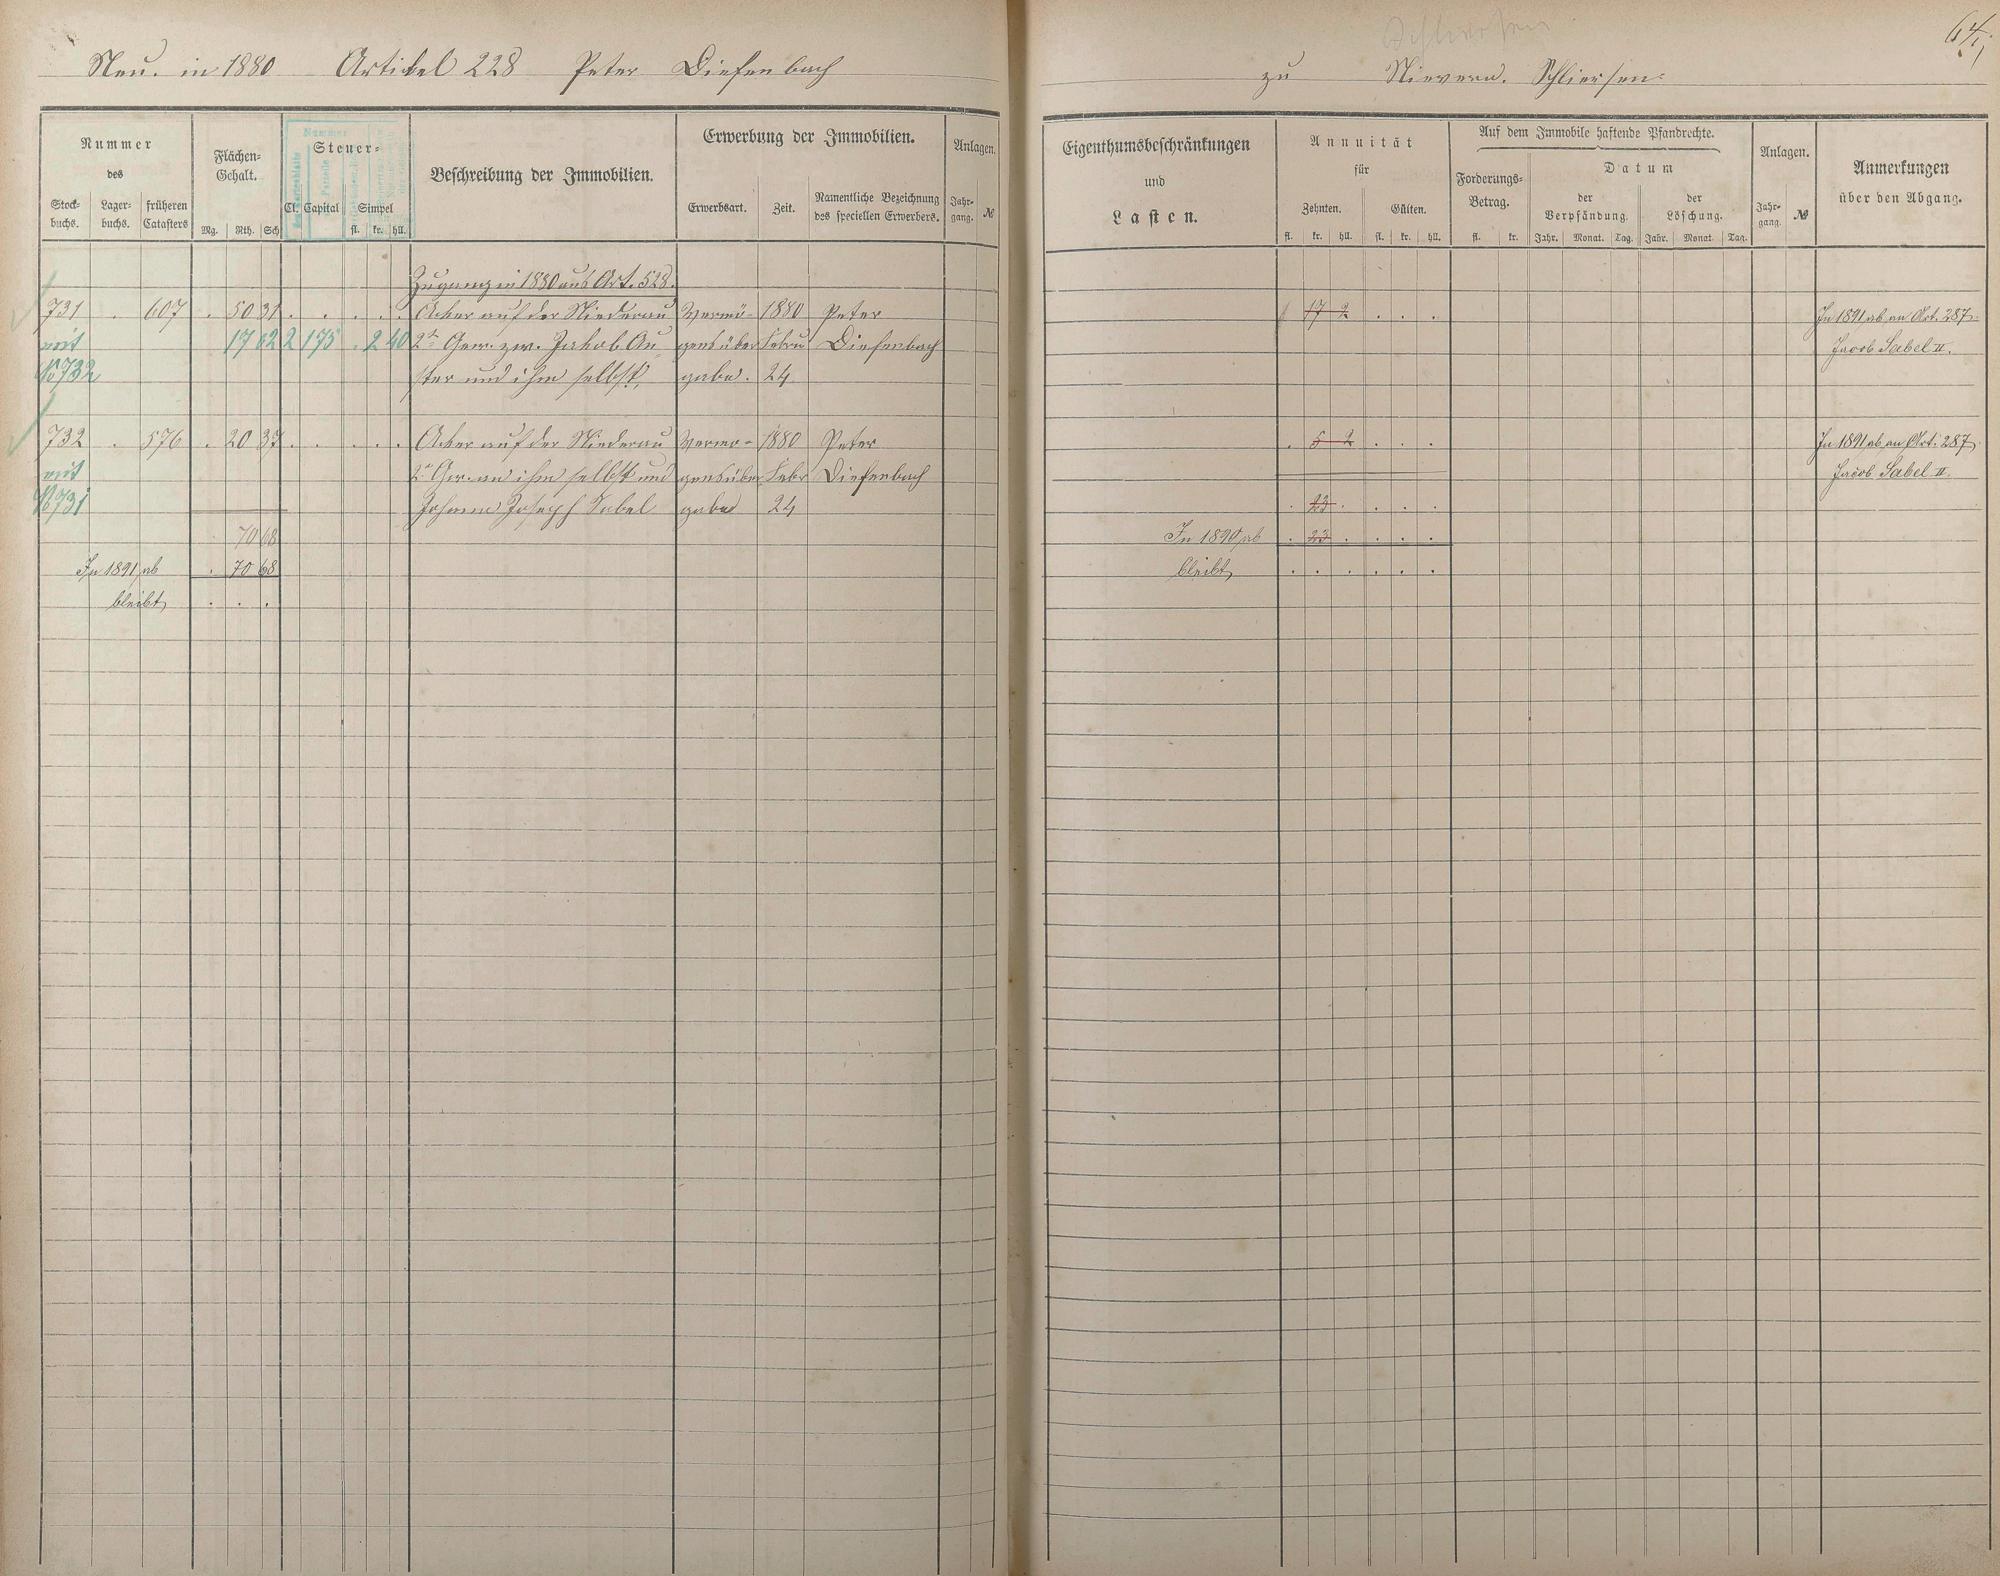 Neu. in 1880 Artikel 228 Peter Diefenbach
zu Nievern. Schliersen.
64
Nummer
des
Stock-
buchs.
Lager-
buchs.
früheren
Catasters
Flächen-
Gehalt.
Mg. Rth. Sch
Nummer
Steuer-
Cl. Capital Simpel
fl. kr. hll.
Beschreibung der Immobilien.
Erwerbung der Immobilien.
Erwerbsart. Zeit.
Namentliche Bezeichnung
des speciellen Erwerbers.
Anlagen.
Jahr-
gang. №
Eigenthumsbeschränkungen
und
Lasten.
Annuität
für
Zehnten. Gülten.
fl. kr. hll. fl. kr. hll.
Auf dem Immobile haftende Pfandrechte.
Forderungs-
Betrag.
fl. kr.
Datum
der
Verpfändung.
Jahr. Monat. Tag.
der
Löschung.
Jahr. Monat. Tag.
Anlagen.
Jahr-
gang. №
Anmerkungen
über den Abgang.
Zugang in 1880 aus Art. 528.
731 . 607 . 50 31 . . . . . Acker auf der Niederau Vermö- 1880 Peter 17 2 . . . In 1891 ab an Art. 287
mit 17 62 2 175 . 2 40 2te Gew. zw. Jakob Au gensüber Febru Diefenbach Jacob Sabel II.
No 732 ster und ihm selbst, gabe. 24
732 . 576 . 20 37 . . . . . Acker auf der Niederau Vermö- 1880 Peter . 5 2 . . . In 1891 ab an Art. 287
mit 2te Gew. an ihm selbst und gensüber Febr Diefenbach Jacob Sabel II.
No 731 Johann Joseph Sabel gabe 24 . 23 . . . .
70 68 In 1890 ab . 23 . . . .
In 1891 ab . 70 68 bleibt . . . . . .
bleibt . . .